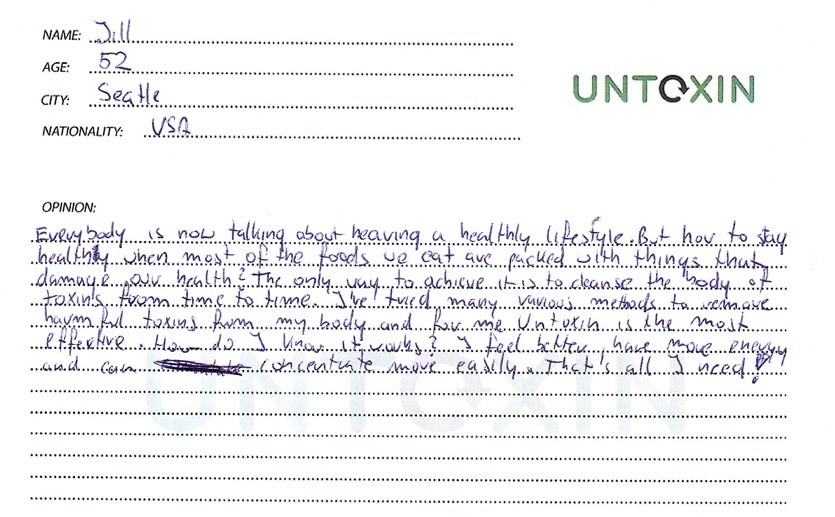 NAME: Jill
AGE: 52
CITY: Seattle
NATIONALITY: USA
UNTOXIN
OPINION:
Everybody is now talking about heaving a healthly lifestyle. But how to stay
healthy when most of the foods we eat are packed with things that
damage our health? The only way to achieve it is to cleanse the body of
toxins from time to time. I've tried many various methods to remove
harmful toxins from my body and for me Untoxin is the most
effective. How do I know it works? I feel better, have more energy
and can concentrate more easily. That's all I need!
UNTOXIN